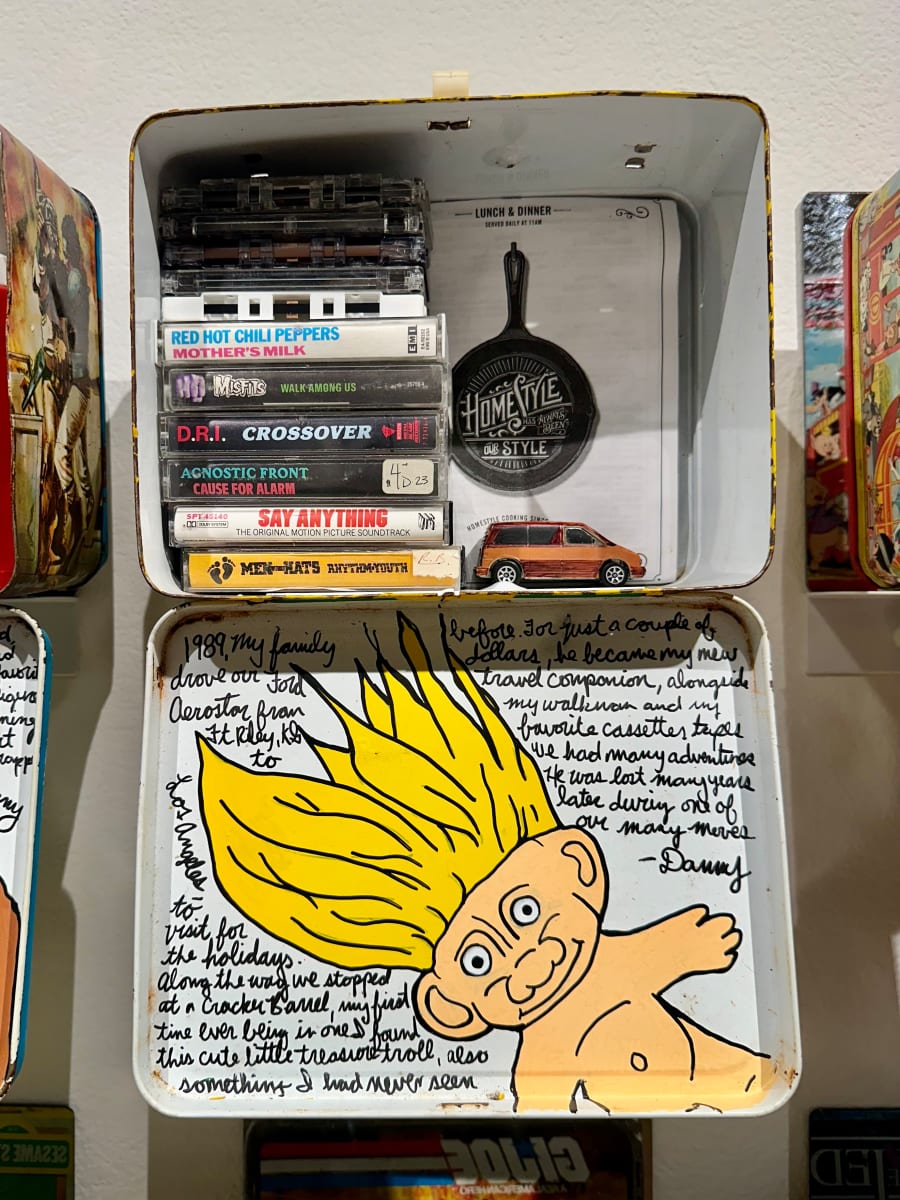 LUNCH & DINNER
SERVED DAILY AT 11AM
HOMESTYLE
HAS ALWAYS
BEEN
OUR STYLE
HOMESTYLE COOKING
RED HOT CHILI PEPPERS
MOTHER'S MILK
EMI
MISFITS WALK AMONG US
D.R.I. CROSSOVER
AGNOSTIC FRONT
CAUSE FOR ALARM
4
D 23
SPT 45140
SAY ANYTHING
THE ORIGINAL MOTION PICTURE SOUNDTRACK
MEN HATS RHYTHM OF YOUTH
R.B.
1989, my family
drove our Ford
Aerostar from
Ft Riley, KS
to
Los Angeles
to
visit for
the holidays.
Along the way we stopped
at a Cracker Barrel, my first
time ever being in one I found
this cute little treasure troll, also
something I had never seen
before. For just a couple of
dollars, he became my new
travel companion, alongside
my walkman and my
favorite cassettes tapes
we had many adventures
He was lost many years
later during one of
our many moves
-Danny
SESAME
GI JOE
A REAL AMERICAN HERO
JED